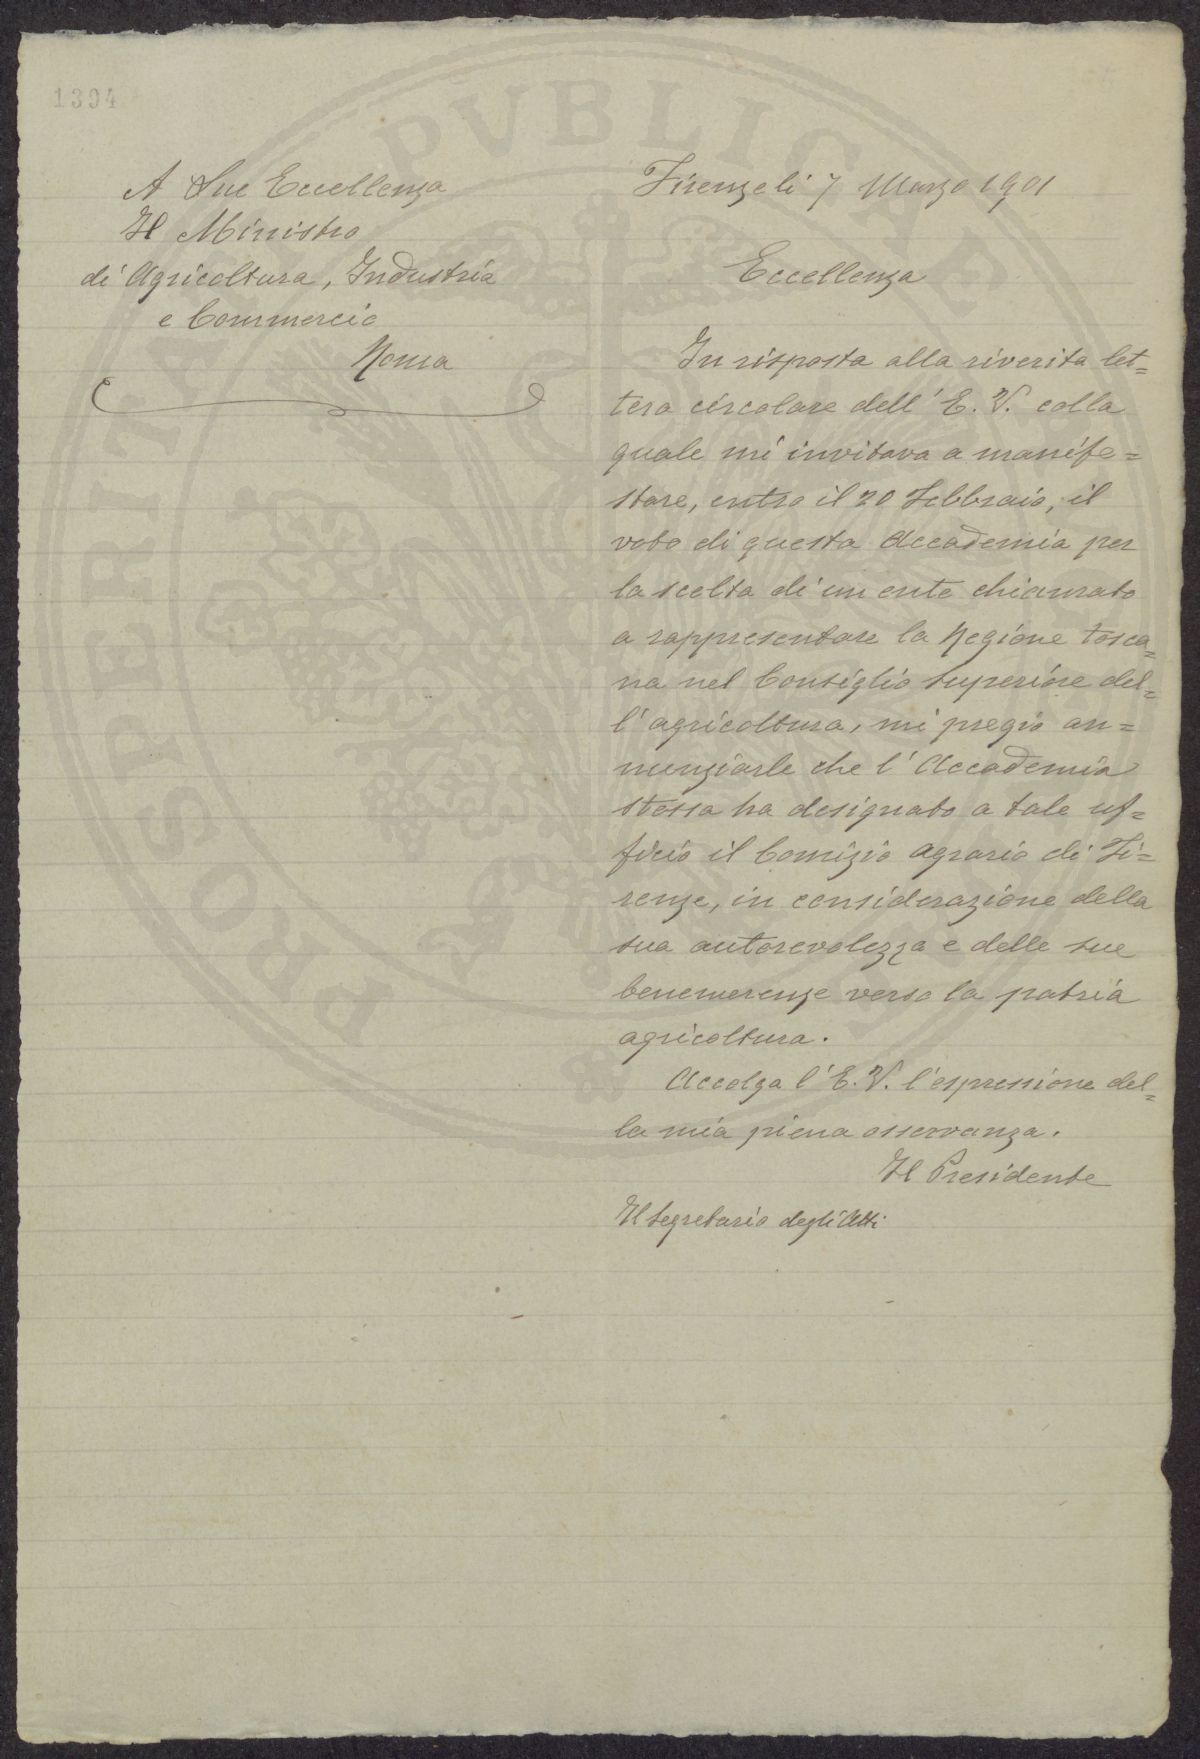 1394
A Sue Eccellenza
Il Ministro
di Agricoltura, Industria
e Commercio
Roma
Firenze li 7 Marzo 1901
Eccellenza
In risposta alla riverita let=
tera circolare dell' E. V. colla
quale mi invitava a manife=
stare, entro il 20 Febbraio, il
voto di questa Accademia per
la scelta di un ente chiamato
a rappresentare la Regione tosca=
na nel Consiglio superiore del=
l'agricoltura, mi pregio an=
nunziarle che l'Accademia
stessa ha designato a tale uf=
ficio il Comizio agrario di Fi=
renze, in considerazione della
sua autorevolezza e delle sue
benemerenze verso la patria
agricoltura.
Accolga l'E. V. l'espressione del=
la mia piena osservanza.
Il Presidente
Il Segretario degli Atti
PROSPERITATI PVBLICAE AVGENDAE